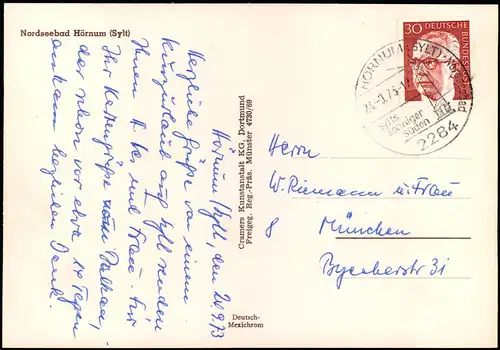 Nordseebad Hörnum (Sylt)
Hörnum/Sylt, den 20.9.73
Herzliche Grüße von einem
Kurzurlaub auf Sylt senden
Ihnen H. und Frau. Für
Ihr Kartengrüße vom
der schon vor etwa 14 Tagen
ankam herzlichen Dank.
Cramers Kunstanstalt KG, Dortmund
Freigeg. Reg.-Präs. Münster 4730/69
Deutsch-
Mexichrom
30 DEUTSCHE
BUNDESPOST
HÖRNUM (SYLT)
Sylts
sonniger
Süden
2284
Herrn
W. Riemann u. Frau
8 München
31